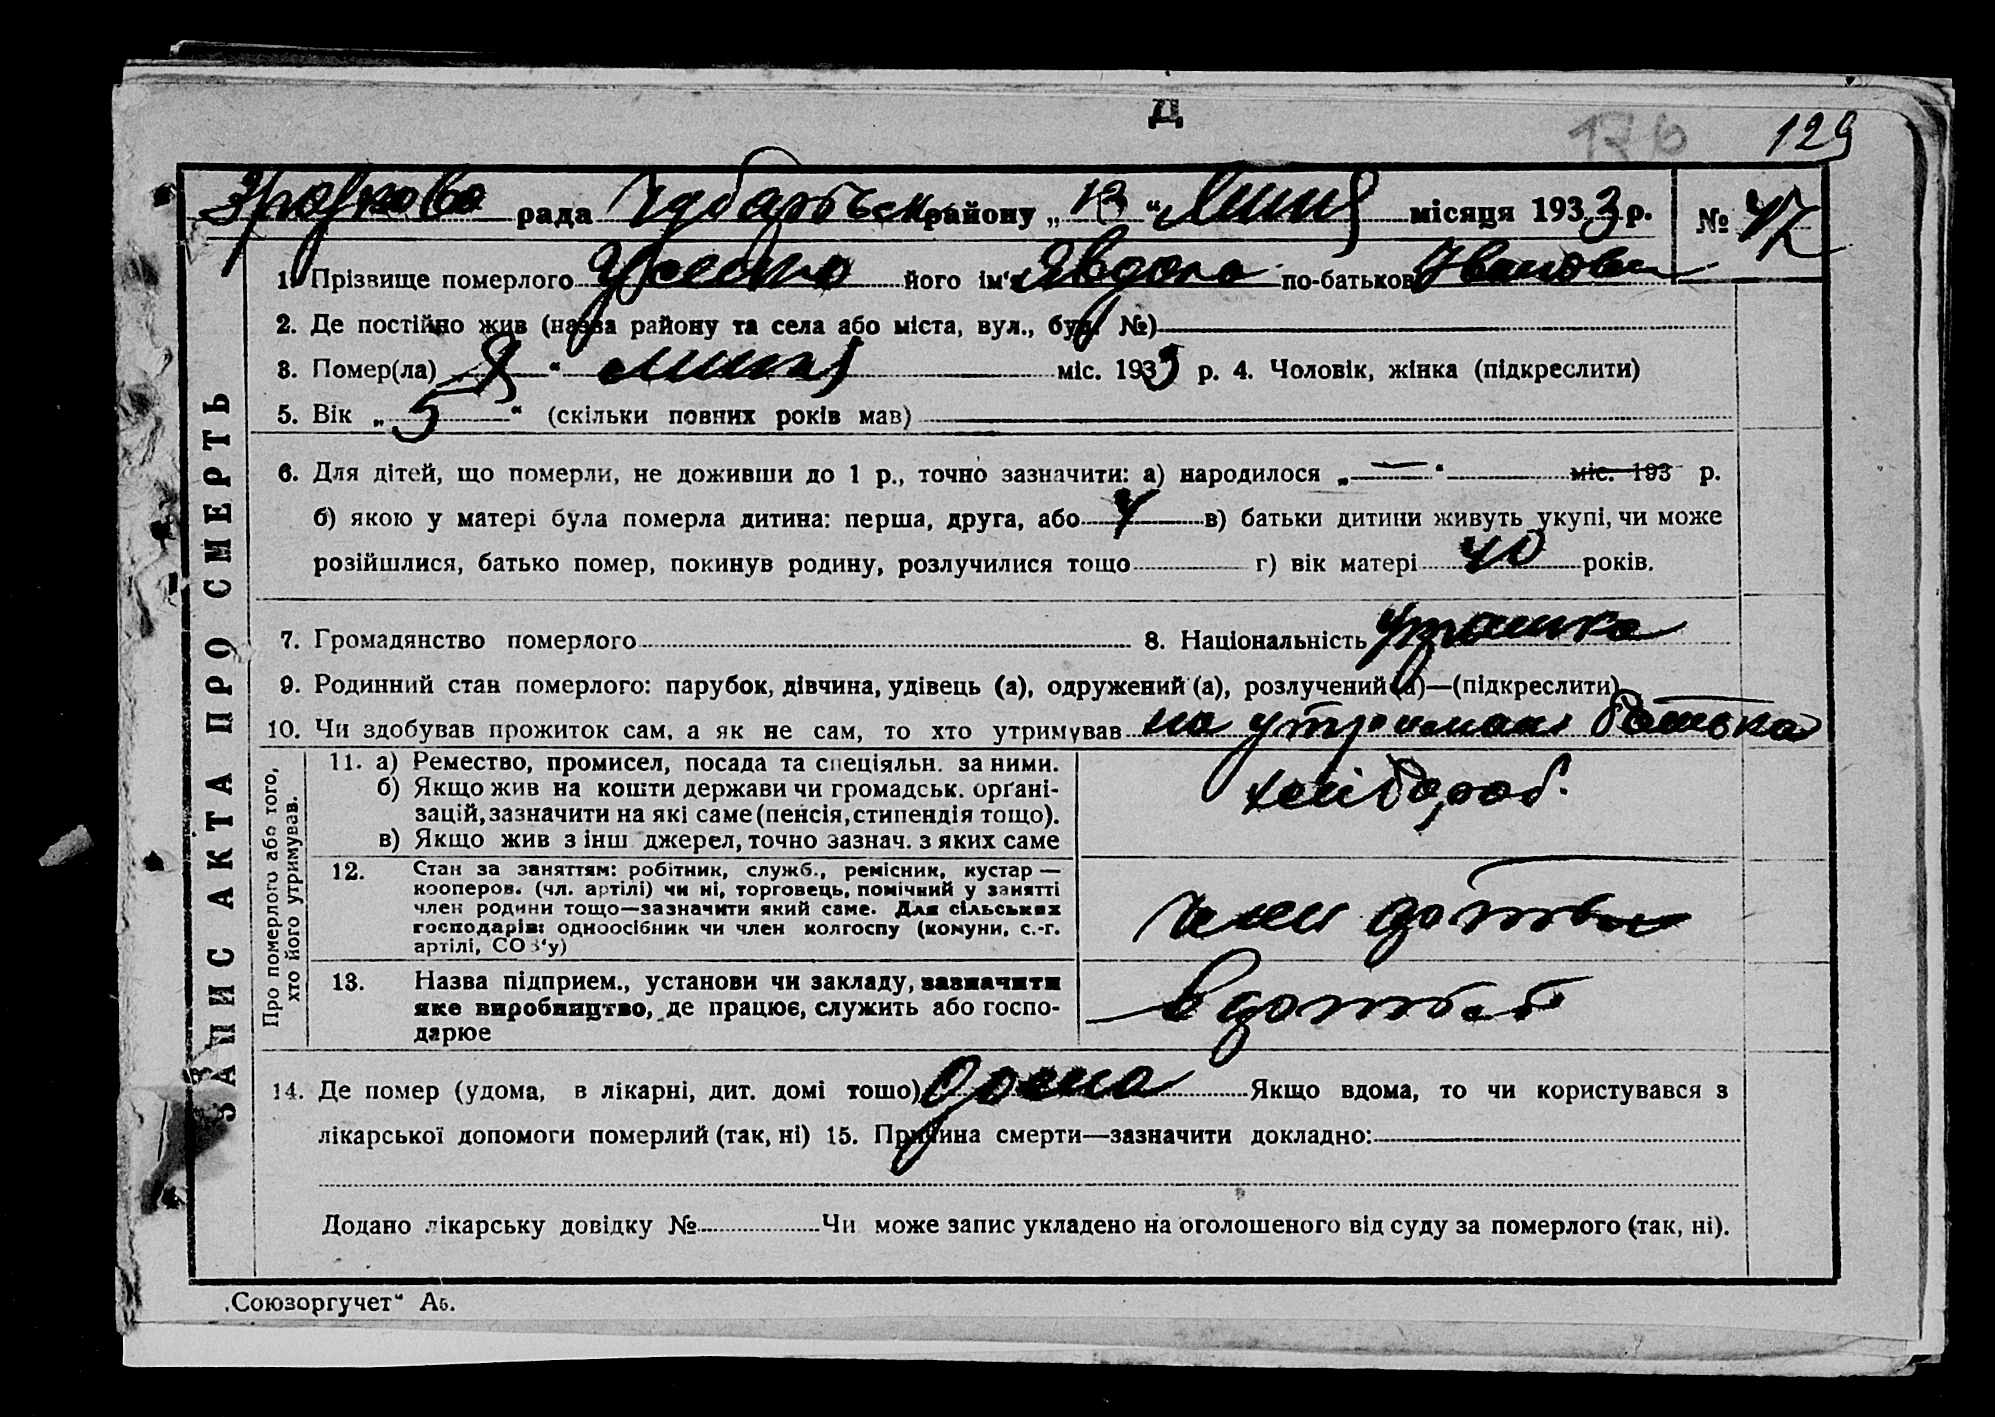 Д
176
129
рада району „13“ Липня місяця 1933 р. № 47
1. Прізвище померлого його ім'я Явдоха по-батькові Іванова
2. Де постійно жив (назва району та села або міста, вул., буд. №)
3. Помер(ла) „ “ липня міс. 1933 р. 4. Чоловік, жінка (підкреслити)
5. Вік „5“ (скільки повних років мав)
6. Для дітей, що померли, не доживши до 1 р., точно зазначити: а) народилося „—“ міс. 193 р.
б) якою у матері була померла дитина: перша, друга, або 4 в) батьки дитини живуть укупі, чи може
розійшлися, батько помер, покинув родину, розлучилися тощо г) вік матері 40 років.
7. Громадянство померлого 8. Національність
9. Родинний стан померлого: парубок, дівчина, удівець (а), одружений (а), розлучений (а)—(підкреслити)
10. Чи здобував прожиток сам, а як не сам, то хто утримував на утриман батька
ЗАПИС АКТА ПРО СМЕРТЬ
Про померлого або того,
хто його утримував.
11. а) Ремество, промисел, посада та спеціяльн. за ними.
б) Якщо жив на кошти держави чи громадськ. орґані-
зацій, зазначити на які саме (пенсія, стипендія тощо).
в) Якщо жив з інш джерел, точно зазнач. з яких саме
хліборог.
12. Стан за заняттям: робітник, служб., ремісник, кустар —
кооперов. (чл. артілі) чи ні, торговець, помічний у занятті
член родини тощо—зазначити який саме. Для сільських
господарів: одноосібник чи член колгоспу (комуни, с.-г.
артілі, СОЗ'у)
член
13. Назва підприєм., установи чи закладу, зазначити
яке виробництво, де працює, служить або госпо-
дарює
в
14. Де помер (удома, в лікарні, дит. домі тошо) дома Якщо вдома, то чи користувався з
лікарської допомоги померлий (так, ні) 15. Причина смерти—зазначити докладно:
Додано лікарську довідку № Чи може запис укладено на оголошеного від суду за померлого (так, ні).
„Союзоргучет“ Аб.